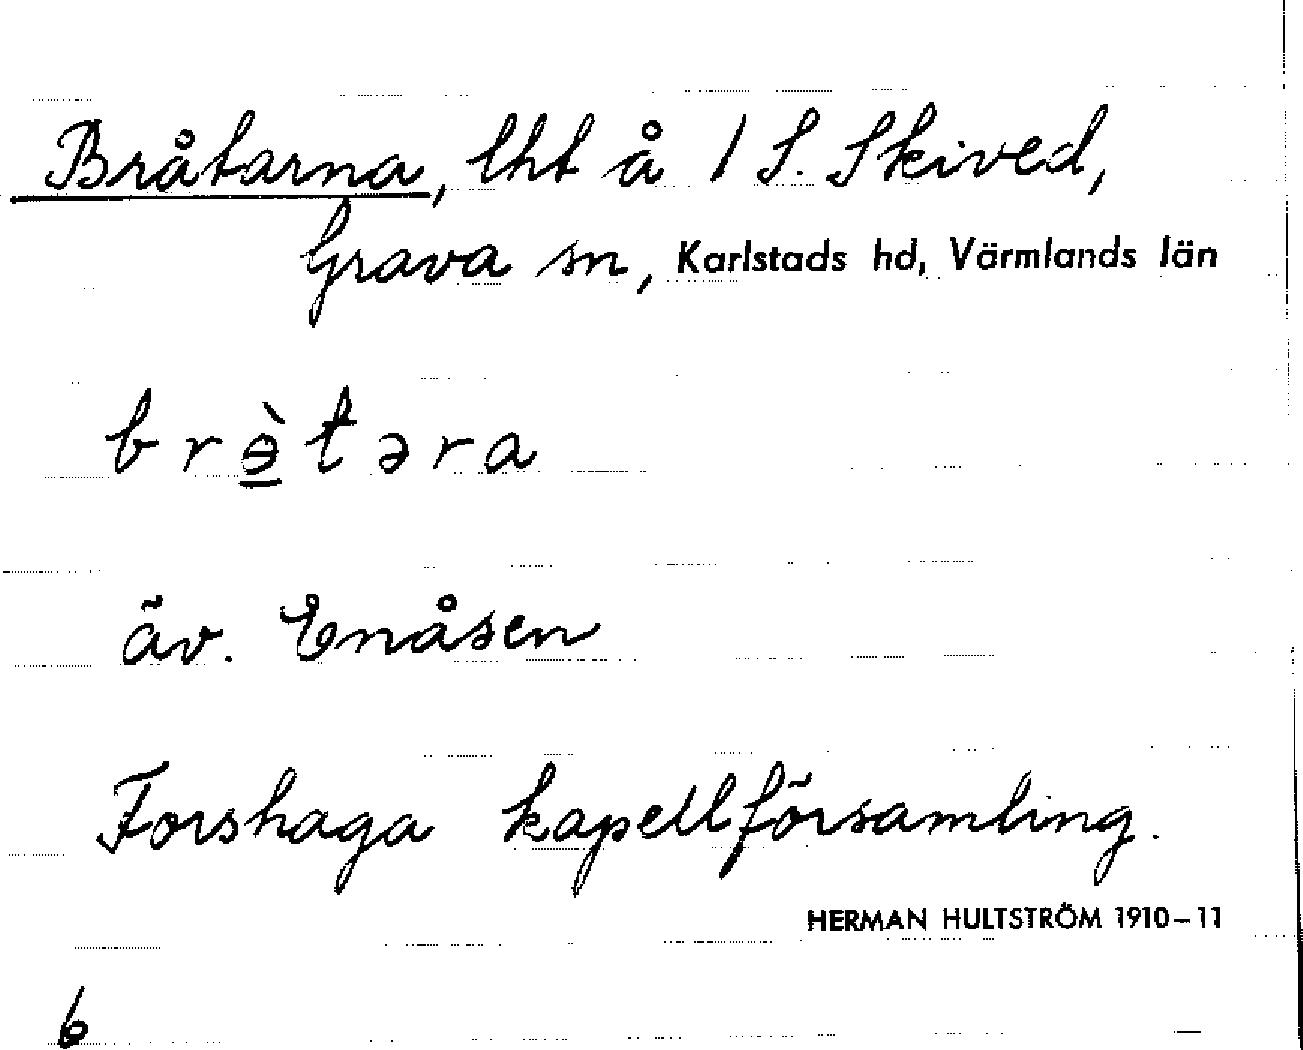 Bråtarna, lht å 1 S. Skived,
Grava sn, Karlstads hd, Värmlands län
brɘ̠̀təra
äv. Enåsen
Forshaga kapellförsamling.
HERMAN HULTSTRÖM 1910–11
6